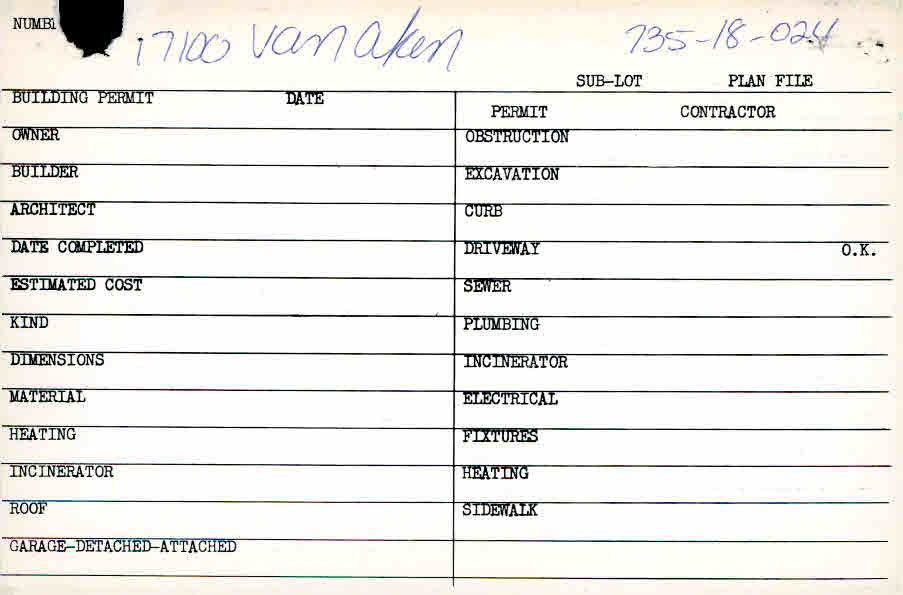 NUMB 17100 Van Aken 735-18-024
SUB-LOT PLAN FILE
BUILDING PERMIT DATE
PERMIT CONTRACTOR
OWNER OBSTRUCTION
BUILDER EXCAVATION
ARCHITECT CURB
DATE COMPLETED DRIVEWAY O.K.
ESTIMATED COST SEWER
KIND PLUMBING
DIMENSIONS INCINERATOR
MATERIAL ELECTRICAL
HEATING FIXTURES
INCINERATOR HEATING
ROOF SIDEWALK
GARAGE-DETACHED-ATTACHED